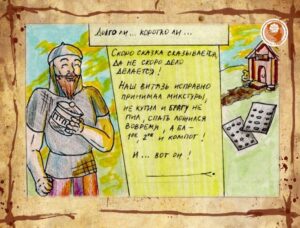 Долго ли... коротко ли...
Скоро сказка сказывается,
да не скоро дело
делается!
Наш витязь исправно
принимал микстуры,
не курил и брагу не
пил, спать ложился
вовремя, а ел –
1ое, 2ое и компот!
И... вот он!